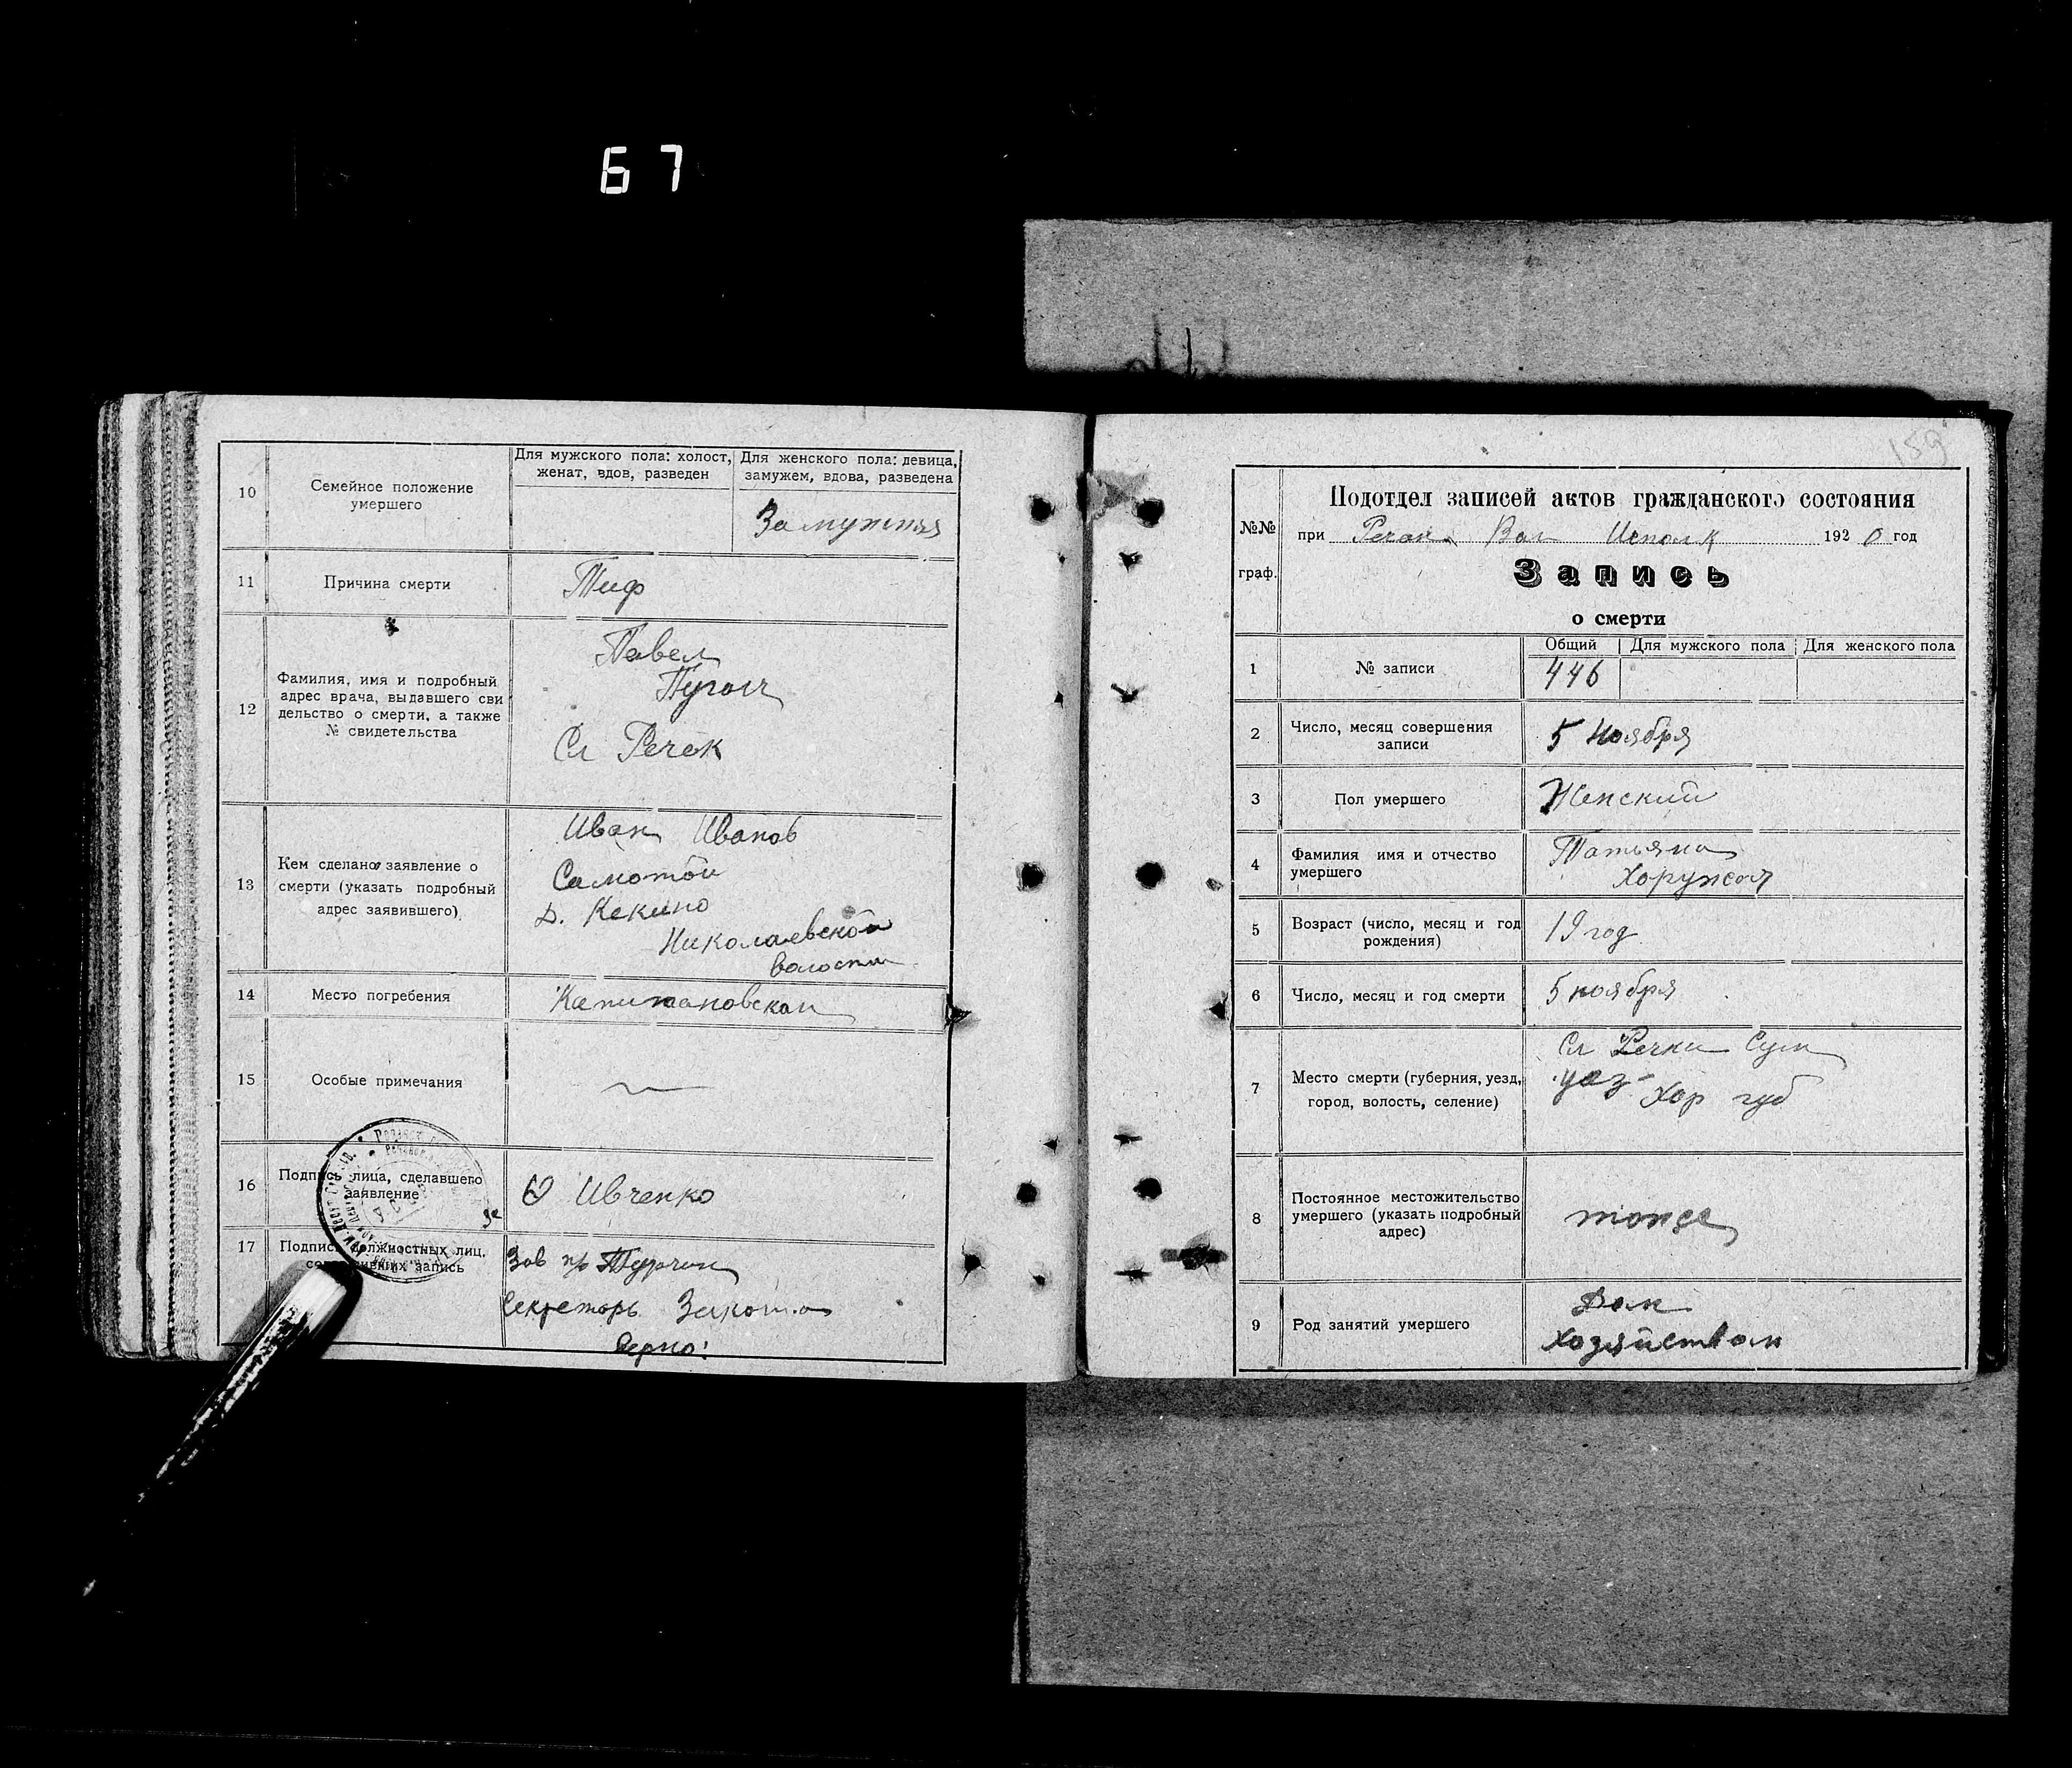 67
10
Семейное положение
умершего
Для мужского пола: холост,
женат, вдов, разведен
Для женского пола: девица,
замужем, вдова, разведена
Замужняя
11
Причина смерти
Тиф
12
Фамилия, имя и подробный
адрес врача, выдавшего сви
дельство о смерти, а также
№ свидетельства
Павел
Сл Речек
13
Кем сделано заявление о
смерти (указать подробный
адрес заявившего)
Иван Иванов
Самотой
Д. Кекино
Николаевской
волости
14
Место погребения
15
Особые примечания
16
Подпись лица, сделавшего
заявление
Ивченко
17
Подписи должностных лиц,
запись
Зав п/о Турчин
Секреторь
Верно:
159
№№
граф.
Подотдел записей актов гражданского состояния
при Речан. Вол Исполк 1920 год
Запись
о смерти
1
№ записи
Общий
Для мужского пола
Для женского пола
446
2
Число, месяц совершения
записи
5 Ноября
3
Пол умершего
Женский
4
Фамилия имя и отчество
умершего
Татьяна
Хоружая
5
Возраст (число, месяц и год
рождения)
19 год
6
Число, месяц и год смерти
5 ноября
7
Место смерти (губерния, уезд,
город, волость, селение)
Сл Речки Сум
уез Хар губ
8
Постоянное местожительство
умершего (указать подробный
адрес)
тоже
9
Род занятий умершего
Дом
Хозяйством